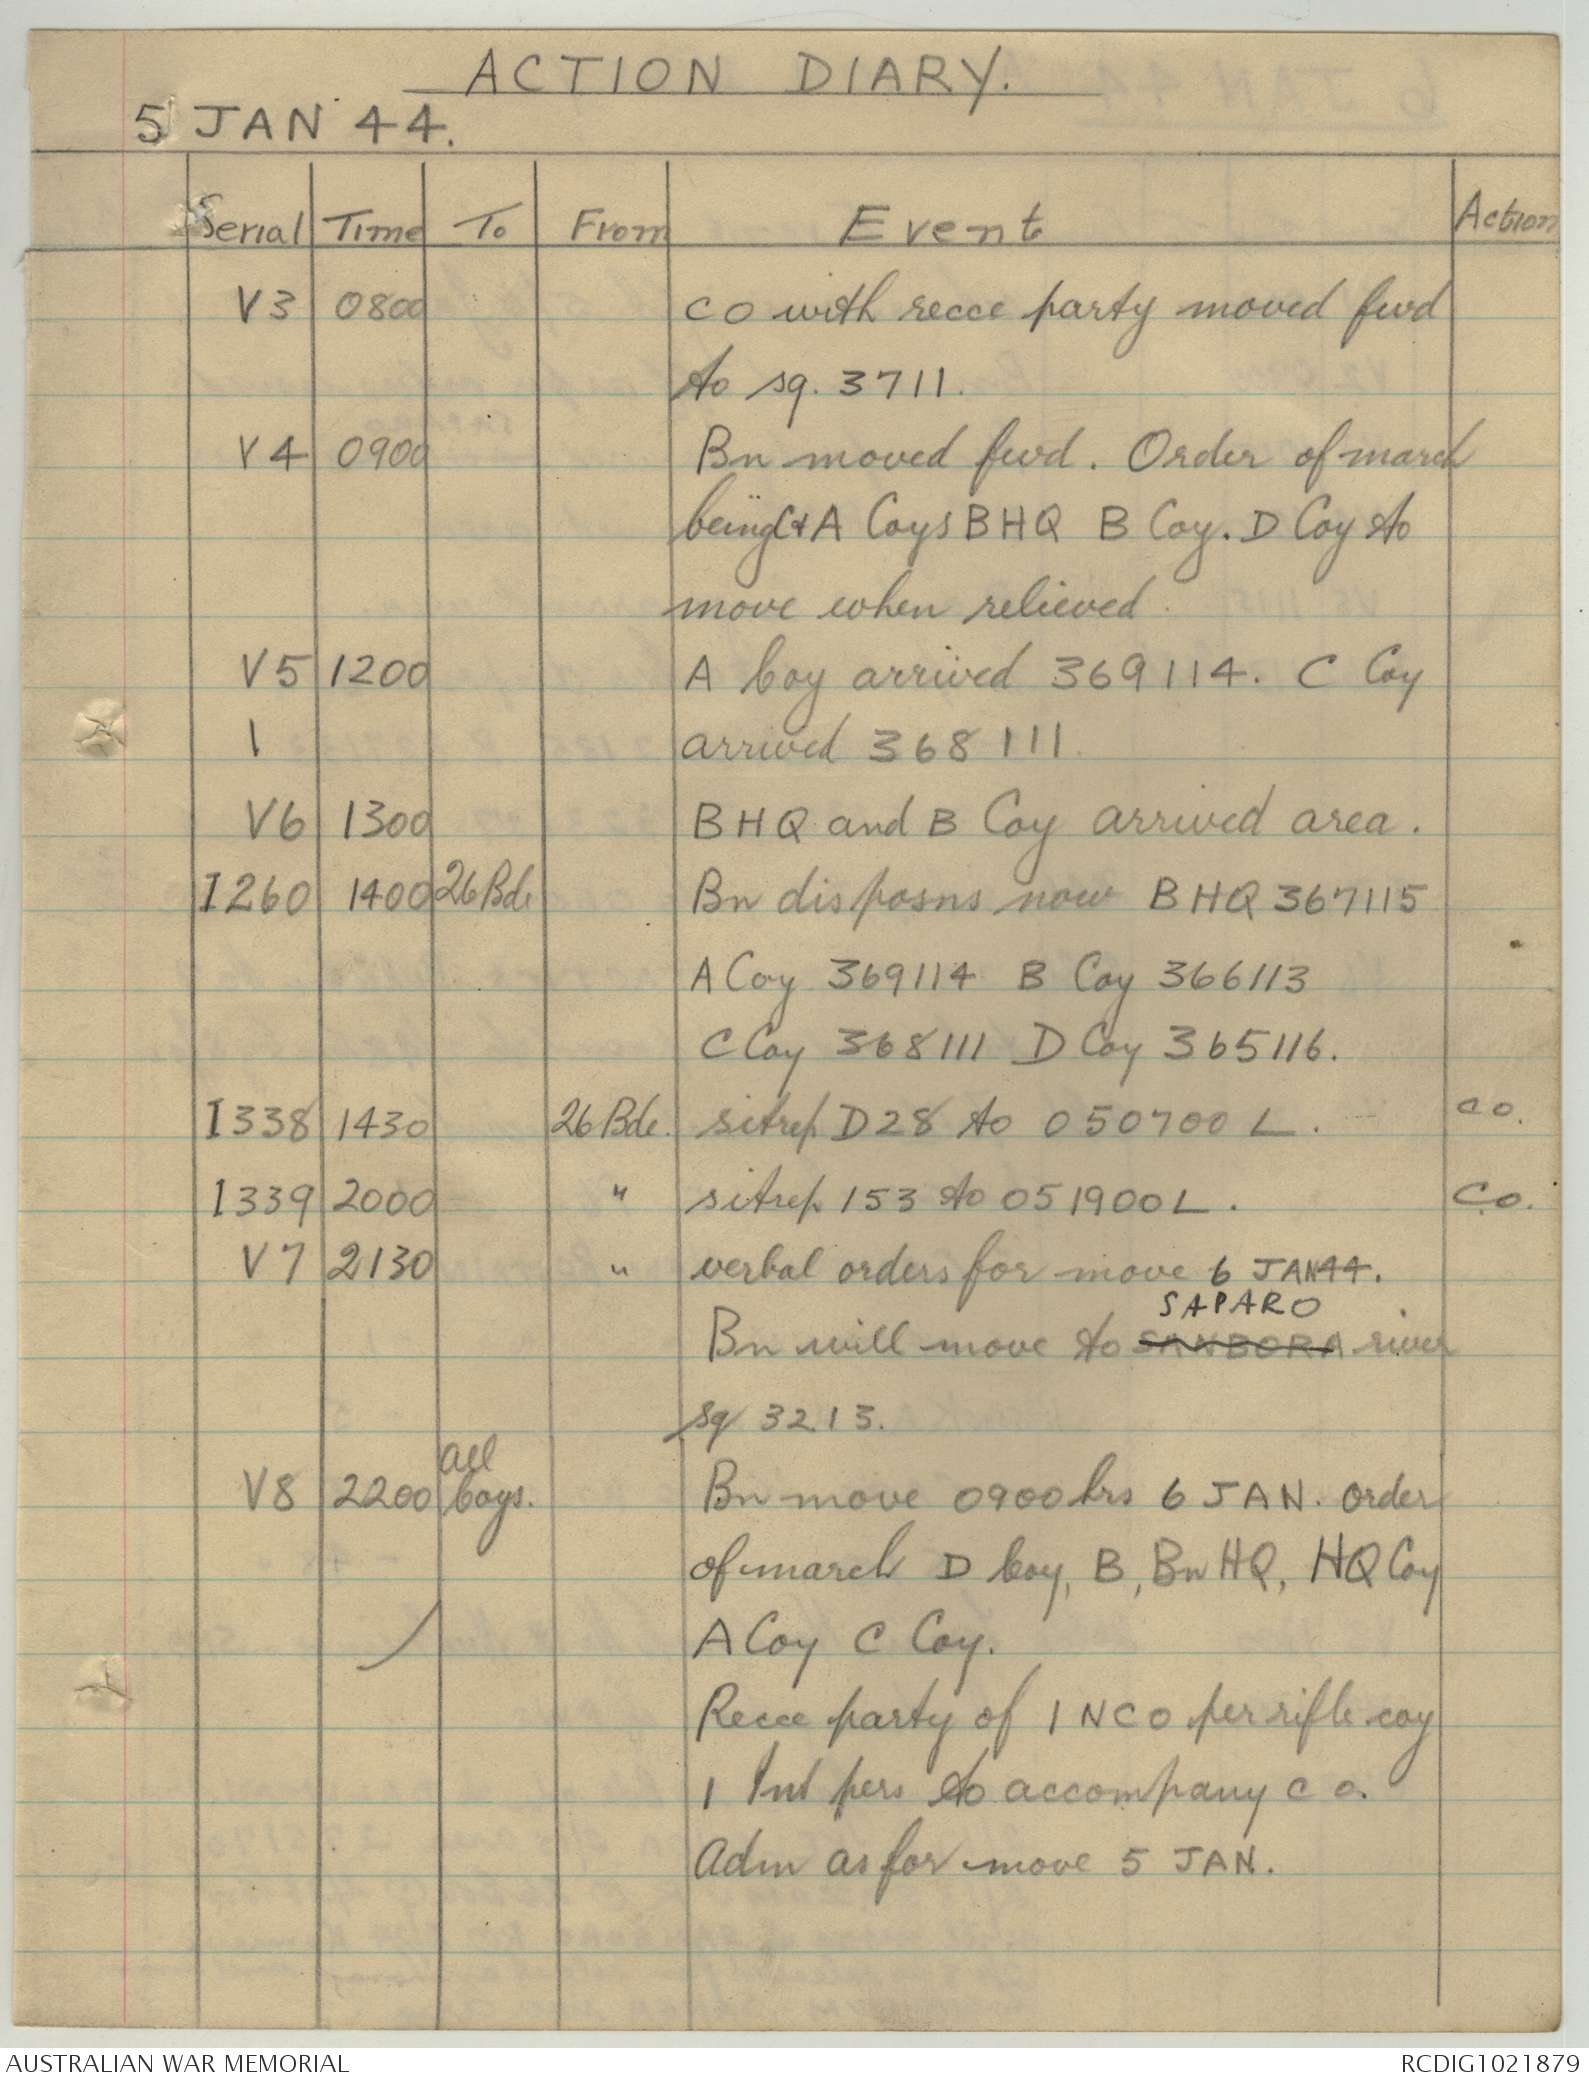 ACTION DIARY.
5 JAN 44.
Serial Time To From Event Action
V3 0800 CO with recce party moved fwd
to sq. 3711.
V4 0900 Bn moved fwd. Order of march
being C & A Coys BHQ B Coy. D Coy to
move when relieved.
V5 1200 A Coy arrived 369114. C Coy
1 arrived 368111.
V6 1300 BHQ and B Coy arrived area.
I260 1400 26 Bde Bn disposns now BHQ 367115
A Coy 369114 B Coy 366113
C Coy 368111 D Coy 365116.
I338 1430 26 Bde. sitrep D28 to 050700L. CO.
I339 2000 " sitrep 153 to 051900L. C.O.
V7 2130 " verbal orders for move 6 JAN 44.
SAPARO
Bn will move to SANBORA river
sq 3213.
all
V8 2200 Coys. Bn move 0900 hrs 6 JAN. order
of march D Coy, B, Bn HQ, HQ Coy
A Coy C Coy.
Recce party of 1 NCO per rifle coy
1 Int pers to accompany CO.
Adm as for move 5 JAN.
AUSTRALIAN WAR MEMORIAL RCDIG1021879